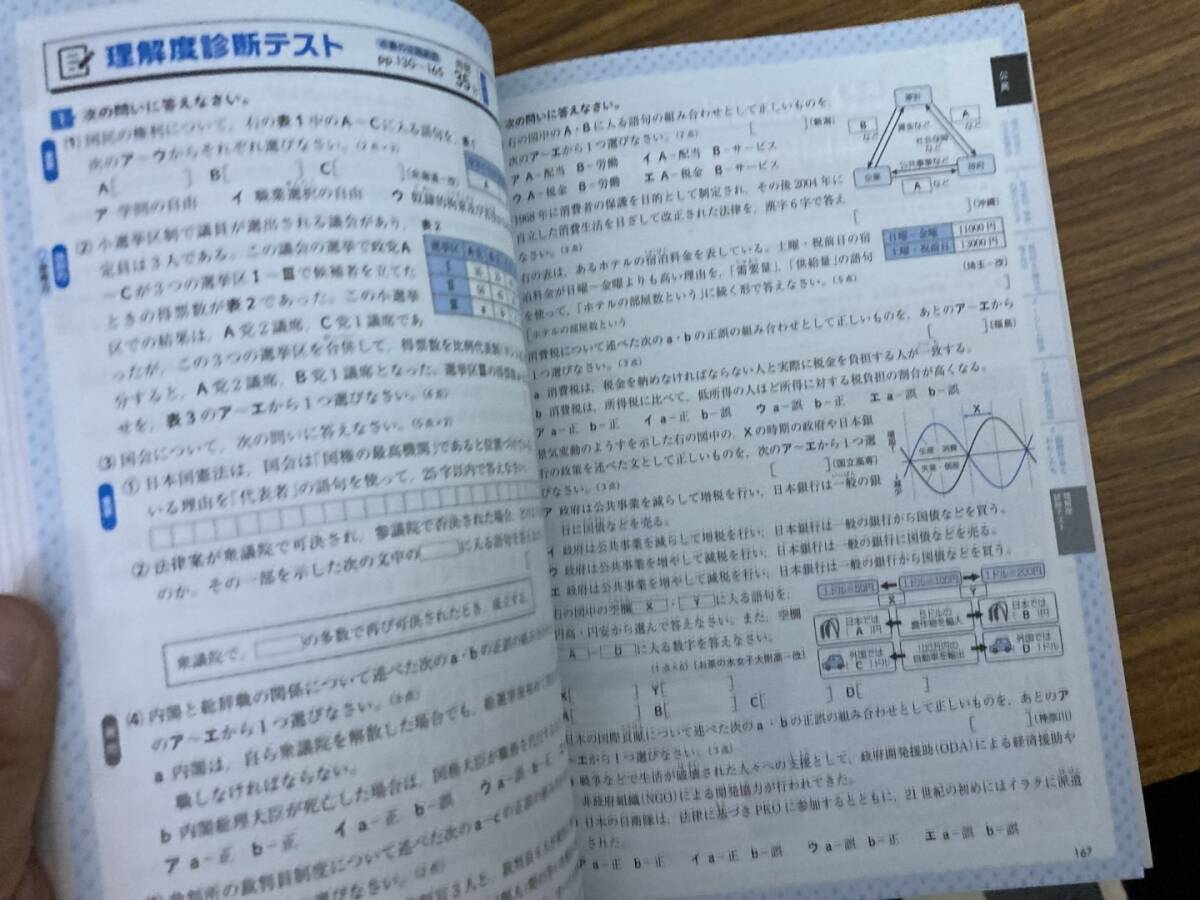 理解度診断テスト
pp.130~165
35
1 次の問いに答えなさい。
(1) 国民の権利について，右の表1中のA~Cに入る語句を，
次のア~ウからそれぞれ選びなさい。
A[ ] B[ ] C[ ]
ア 学問の自由 イ 職業選択の自由 ウ
(2) 小選挙区制で議員が選出される議会があり，
定員は3人である。この議会の選挙で政党A
~Cが3つの選挙区Ⅰ~Ⅲで候補者を立てた
ときの得票数が表2であった。この小選挙
区での結果は，A党2議席，C党1議席であ
ったが，この3つの選挙区を合併して，得票数を比例代表制
分すると，A党2議席，B党1議席となった。選挙区Ⅲの得票
せを，表3のア~エから1つ選びなさい。(6点)
表2
選挙区
Ⅰ
Ⅱ
Ⅲ
(3) 国会について，次の問いに答えなさい。(5点×2)
① 日本国憲法は，国会は「国権の最高機関」であると位置づけ
いる理由を「代表者」の語句を使って，25字以内で答えなさい。
② 法律案が衆議院で可決され，参議院で否決された場合，
のか。その一部を示した次の文中の に入る語句を答え
衆議院で， の多数で再び可決されたとき，成立する。
(4) 内閣と総辞職の関係について述べた次のa・bの正誤の組み合わせ
のア~エから1つ選びなさい。(3点)
a 内閣は，自ら衆議院を解散した場合でも，総選挙後初めて
職しなければならない。
b 内閣総理大臣が死亡した場合は，国務大臣が職務を代行する
ア a-正 b-正 イ a-正 b-誤 ウ a-誤 b-正
裁判員制度について述べた次のa~cの正誤の組み
公共
次の問いに答えなさい。
右の図中のA・Bに入る語句の組み合わせとして正しいものを，
次のア~エから1つ選びなさい。(2点) [ ](新潟)
ア A-配当 B-労働 イ A-配当 B-サービス
ウ A-税金 B-労働 エ A-税金 B-サービス
家計
B など
賃金など
社会保障など
A など
公共事業など
企業
政府
A など
1968年に消費者の保護を目的として制定され，その後2004年に
自立した消費生活を目ざして改正された法律を，漢字6字で答え
なさい。(3点) [ ](沖縄)
右の表は，あるホテルの宿泊料金を表している。土曜・祝前日の宿
泊料金が日曜~金曜よりも高い理由を，「需要量」，「供給量」の語句
を使って，「ホテルの部屋数という」に続く形で答えなさい。(5点) (埼玉-改)
日曜~金曜 11000円
土曜・祝前日 13000円
「ホテルの部屋数という ]
消費税について述べた次のa・bの正誤の組み合わせとして正しいものを，あとのア~エから
1つ選びなさい。(3点) [ ](福島)
a 消費税は，税金を納めなければならない人と実際に税金を負担する人が一致する。
b 消費税は，所得税に比べて，低所得の人ほど所得に対する税負担の割合が高くなる。
ア a-正 b-正 イ a-正 b-誤 ウ a-誤 b-正 エ a-誤 b-誤
景気変動のようすを示した右の図中の，Xの時期の政府や日本銀
行の政策を述べた文として正しいものを，次のア~エから1つ選
びなさい。(3点) [ ](国立高専)
X
生産・消費
失業・倒産
ア 政府は公共事業を減らして増税を行い，日本銀行は一般の銀
行に国債などを売る。
イ 政府は公共事業を減らして増税を行い，日本銀行は一般の銀行から国債などを買う。
ウ 政府は公共事業を増やして減税を行い，日本銀行は一般の銀行に国債などを売る。
エ 政府は公共事業を増やして減税を行い，日本銀行は一般の銀行から国債などを買う。
右の図中の空欄 X ・ Y に入る語句を，
円高・円安から選んで答えなさい。また，空欄
A ~ D に入る数字を答えなさい。
(1点×6)(お茶の水女子大附高-改)
1ドル=50円 1ドル=100円 1ドル=200円
X Y
日本では A 円
5ドルの農作物を輸入
日本では B 円
外国では C ドル
100万円の自動車を輸出
外国では D ドル
X[ ] Y[ ]
A[ ] B[ ] C[ ] D[ ]
日本の国際貢献について述べた次のa・bの正誤の組み合わせとして正しいものを，あとのア
~エから1つ選びなさい。(3点) [ ](神奈川)
戦争などで生活が破壊された人々への支援として，政府開発援助(ODA)による経済援助や
非政府組織(NGO)による開発協力が行われてきた。
日本の自衛隊は，法律に基づきPKOに参加するとともに，21世紀の初めにはイラクに派遣
された。
ア a-正 b-正 イ a-正 b-誤 ウ a-誤 b-正 エ a-誤 b-誤
167